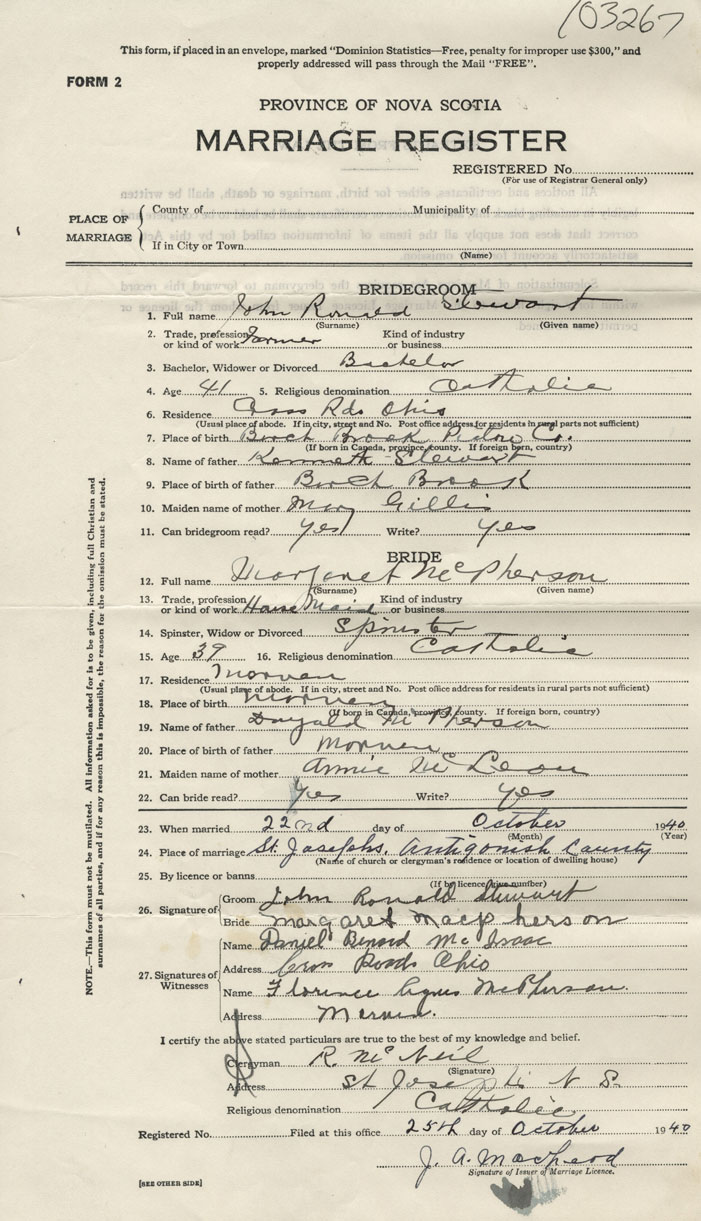 103267
This form, if placed in an envelope, marked "Dominion Statistics—Free, penalty for improper use $300," and
properly addressed will pass through the Mail "FREE".
FORM 2
PROVINCE OF NOVA SCOTIA
MARRIAGE REGISTER
REGISTERED No.
(For use of Registrar General only)
PLACE OF MARRIAGE
County of Municipality of
If in City or Town
(Name)
BRIDEGROOM
1. Full name John Ronald Stewart
(Surname) (Given name)
2. Trade, profession or kind of work Farmer Kind of industry or business
3. Bachelor, Widower or Divorced Bachelor
4. Age 41 5. Religious denomination Catholic
6. Residence Cross Rds Ohio
(Usual place of abode. If in city, street and No. Post office address for residents in rural parts not sufficient)
7. Place of birth Birch Brook Pictou Co.
(If born in Canada, province, county. If foreign born, country)
8. Name of father Kenneth Stewart
9. Place of birth of father Birch Brook
10. Maiden name of mother Mary Gillis
11. Can bridegroom read? yes Write? yes
BRIDE
12. Full name Margaret McPherson
(Surname) (Given name)
13. Trade, profession or kind of work House Maid Kind of industry or business
14. Spinster, Widow or Divorced Spinster
15. Age 39 16. Religious denomination Catholic
17. Residence Morven
(Usual place of abode. If in city, street and No. Post office address for residents in rural parts not sufficient)
18. Place of birth Morven
(If born in Canada, province, county. If foreign born, country)
19. Name of father Dougald McPherson
20. Place of birth of father Morven
21. Maiden name of mother Annie McLean
22. Can bride read? yes Write? yes
23. When married 22nd day of October 1940
(Month) (Year)
24. Place of marriage St. Josephs. Antigonish County
(Name of church or clergyman's residence or location of dwelling house)
25. By licence or banns
(If by licence give number)
26. Signature of
Groom John Ronald Stewart
Bride Margaret Macpherson
27. Signatures of Witnesses
Name Daniel Bernard McIsaac
Address Cross Roads Ohio
Name Florence Agnes McPherson.
Address Morven.
I certify the above stated particulars are true to the best of my knowledge and belief.
Clergyman R. McNeil
(Signature)
Address St Josephs N S.
Religious denomination Catholic
Registered No. Filed at this office 25th day of October 1940
J. A. MacLeod
Signature of Issuer of Marriage Licence.
[SEE OTHER SIDE]
NOTE.—This form must not be mutilated. All information asked for is to be given, including full Christian and
surnames of all parties, and if for any reason this is impossible, the reason for the omission must be stated.